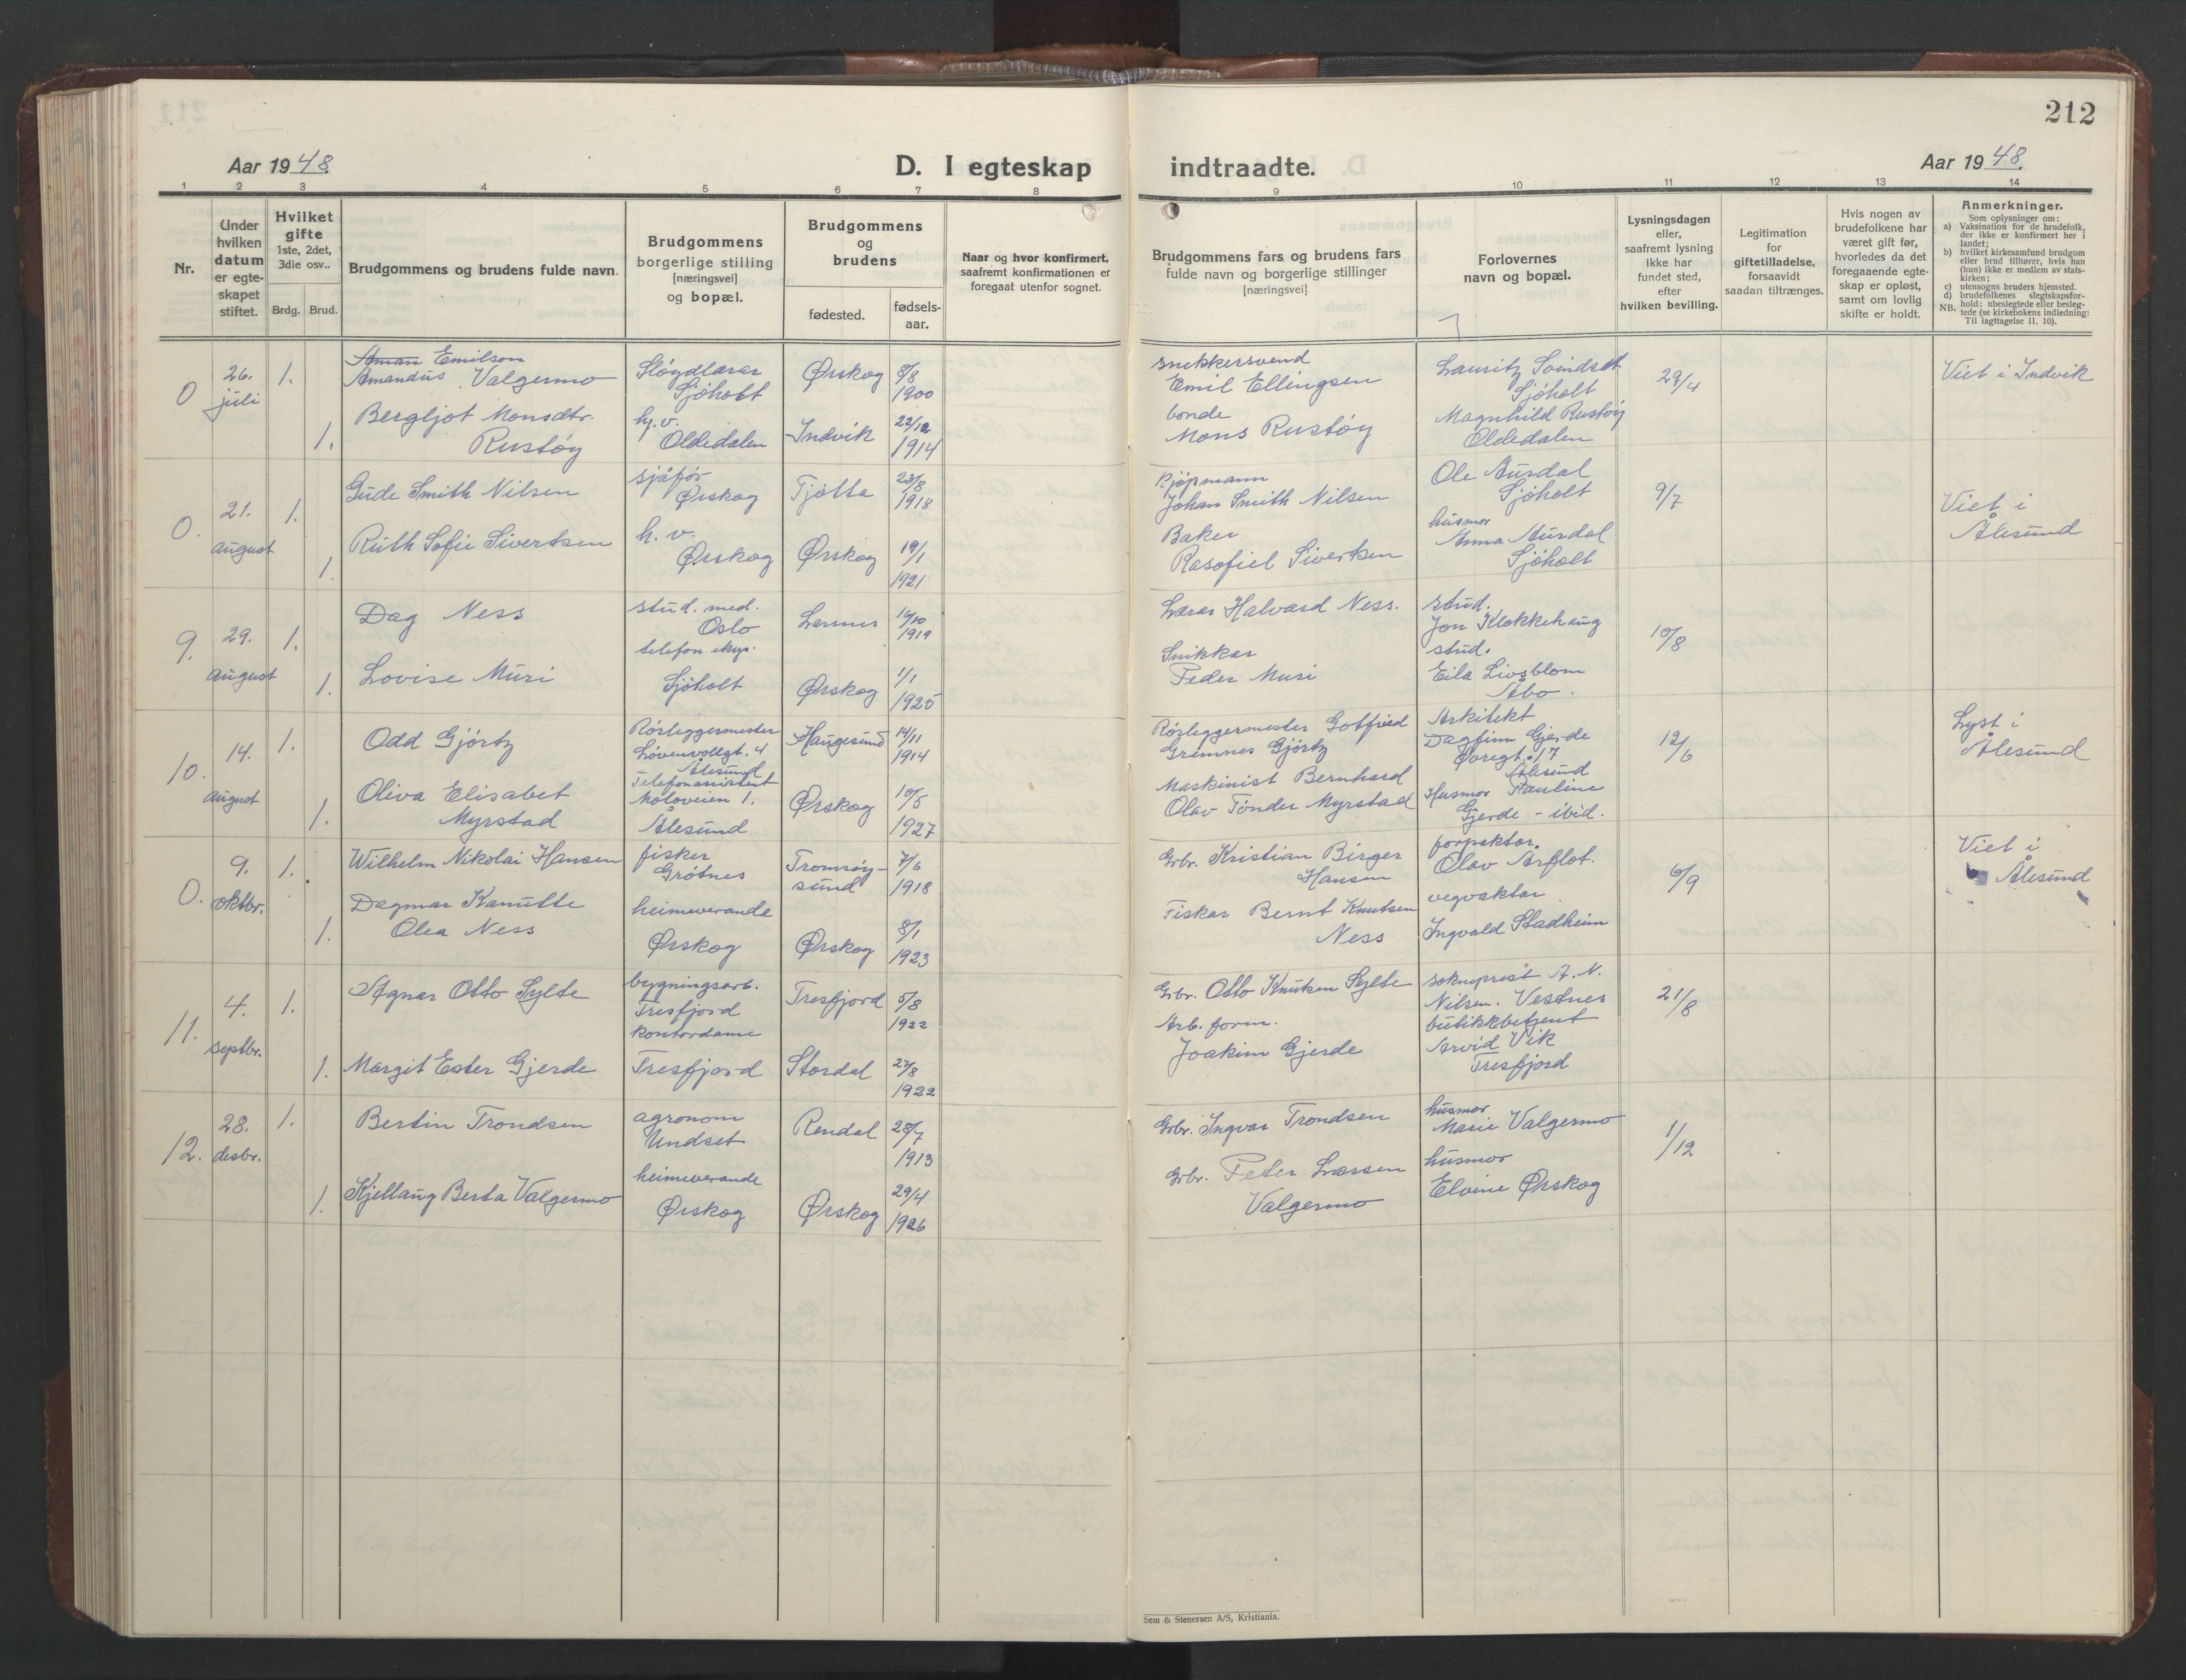 212
Aar 1948.
D. I egteskap indtraadte.
Aar 1948.
1 2 3 4 5 6 7 8 9 10 11 12 13 14
Nr.
Under
hvilken
datum
er egte-
skapet
stiftet.
Hvilket
gifte
1ste, 2det,
3die osv..
Brdg. Brud.
Brudgommens og brudens fulde navn.
Brudgommens
borgerlige stilling
[næringsvei]
og bopæl.
Brudgommens
og
brudens
fødested.
fødsels-
aar.
Naar og hvor konfirmert,
saafremt konfirmationen er
foregaat utenfor sognet.
Brudgommens fars og brudens fars
fulde navn og borgerlige stillinger
[næringsvei]
Forlovernes
navn og bopæl.
Lysningsdagen
eller,
saafremt lysning
ikke har
fundet sted,
efter
hvilken bevilling.
Legitimation
for
giftetilladelse,
forsaavidt
saadan tiltrænges.
Hvis nogen av
brudefolkene har
været gift før,
hvorledes da det
foregaaende egte-
skap er opløst,
samt om lovlig
skifte er holdt.
Anmerkninger.
Som oplysninger om:
a) Vaksination for de brudefolk,
der ikke er konfirmert her i
landet;
b) hvilket kirkesamfund brudgom
eller brud tilhører, hvis han
(hun) ikke er medlem av stats-
kirken;
c) utensogns bruders hjemsted.
d) brudefolkenes slegtskapsfor-
hold: ubeslegtede eller besleg-
NB. tede (se kirkebokens indledning:
Til iagttagelse II. 10).
0
26.
juli
1.
1.
Aman Emilson
Amandus Valgermo
Bergljot Monsdtr.
Rustøy
Sløydlærar
Sjøholt
hj.v.
Oldedalen
Ørskog
Indvik
8/8
1900
22/12
1914
snekkersvend
Emil Ellingsen
bonde
Mons Rustøy
Lauritz Svindseth
Sjøholt
Magnhild Rustøy
Oldedalen
29/4
Viet i Indvik
0.
21.
august
1.
1.
Gude Smith Nilsen
Ruth Sofie Sivertsen
sjåfør
Ørskog
h. v.
Ørskog
Tjøtta
Ørskog
23/8
1918
19/1
1921
Kjøpmann
Johan Smith Nilsen
Baker
Rasofiel Sivertsen
Ole Aurdal
Sjøholt
husmor
Anna Aurdal
Sjøholt
9/7
Viet i
Ålesund
9.
29.
august
1.
1.
Dag Ness
Lovise Muri
stud. med.
Oslo
telefon eksp.
Sjøholt
Ørskog
16/10
1919
1/1
1925
Lærer Halvard Ness.
Snikkar
Peder Muri
stud.
Jon Klokkehaug
stud.
Eila Livsblom
Åbo.
10/8
10.
14.
august
1.
1.
Odd Gjørtz
Oliva Elisabet
Myrstad
Rørleggermester
Løvenvollgt. 4
Ålesund
Telefonassistent
Moloveien 1.
Ålesund
Haugesund
Ørskog
14/11
1914
10/5
1927
Rørleggermester Gotfried
Grimnes Gjørtz
Maskinist Bernhard
Olav Tønder Myrstad
Arkitekt
Dagfinn Gjerde
Øvregt. 17
Ålesund
Husmor Pauline
Gjerde - ibid.
12/6
Lyst i
Ålesund
0.
9.
oktbr.
1.
1.
Wilhelm Nikolai Hansen
Dagmar Kanutte
Olea Ness
fisker
Grøtnes
heimeverande
Ørskog
Tromsøy-
sund
Ørskog
7/6
1918
8/1
1923
Grbr. Kristian Birger
Hansen
Fiskar Bernt Knutsen
Ness
forpaktar.
Olav Arflot.
vegvaktar
Ingvald Stadheim
6/9
Viet i
Ålesund
11.
4.
septbr.
1.
1.
Agnar Otto Sylte
Margit Ester Gjerde
bygningsarb.
Tresfjord
kontordame
Tresfjord
Tresfjord
Stordal
5/8
1922
27/8
1922
Grbr. Otto Knutsen Sylte
Arb. form.
Joakim Gjerde
sokneprest A. N.
Nilsen. Vestnes
butikkbetjent
Arvid Vik
Tresfjord
21/8
12.
28.
desbr.
1.
1.
Bertin Trondsen
Kjellaug Berta Valgermo
agronom
Undset
heimeverande
Ørskog
Rendal
Ørskog
28/7
1913
29/4
1926
Grbr. Ingvar Trondsen
Grbr. Peter Larssen
Valgermo
husmor
Marie Valgermo
husmor
Elvine Ørskog
1/12
Sem & Stenersen A/S, Kristiania.